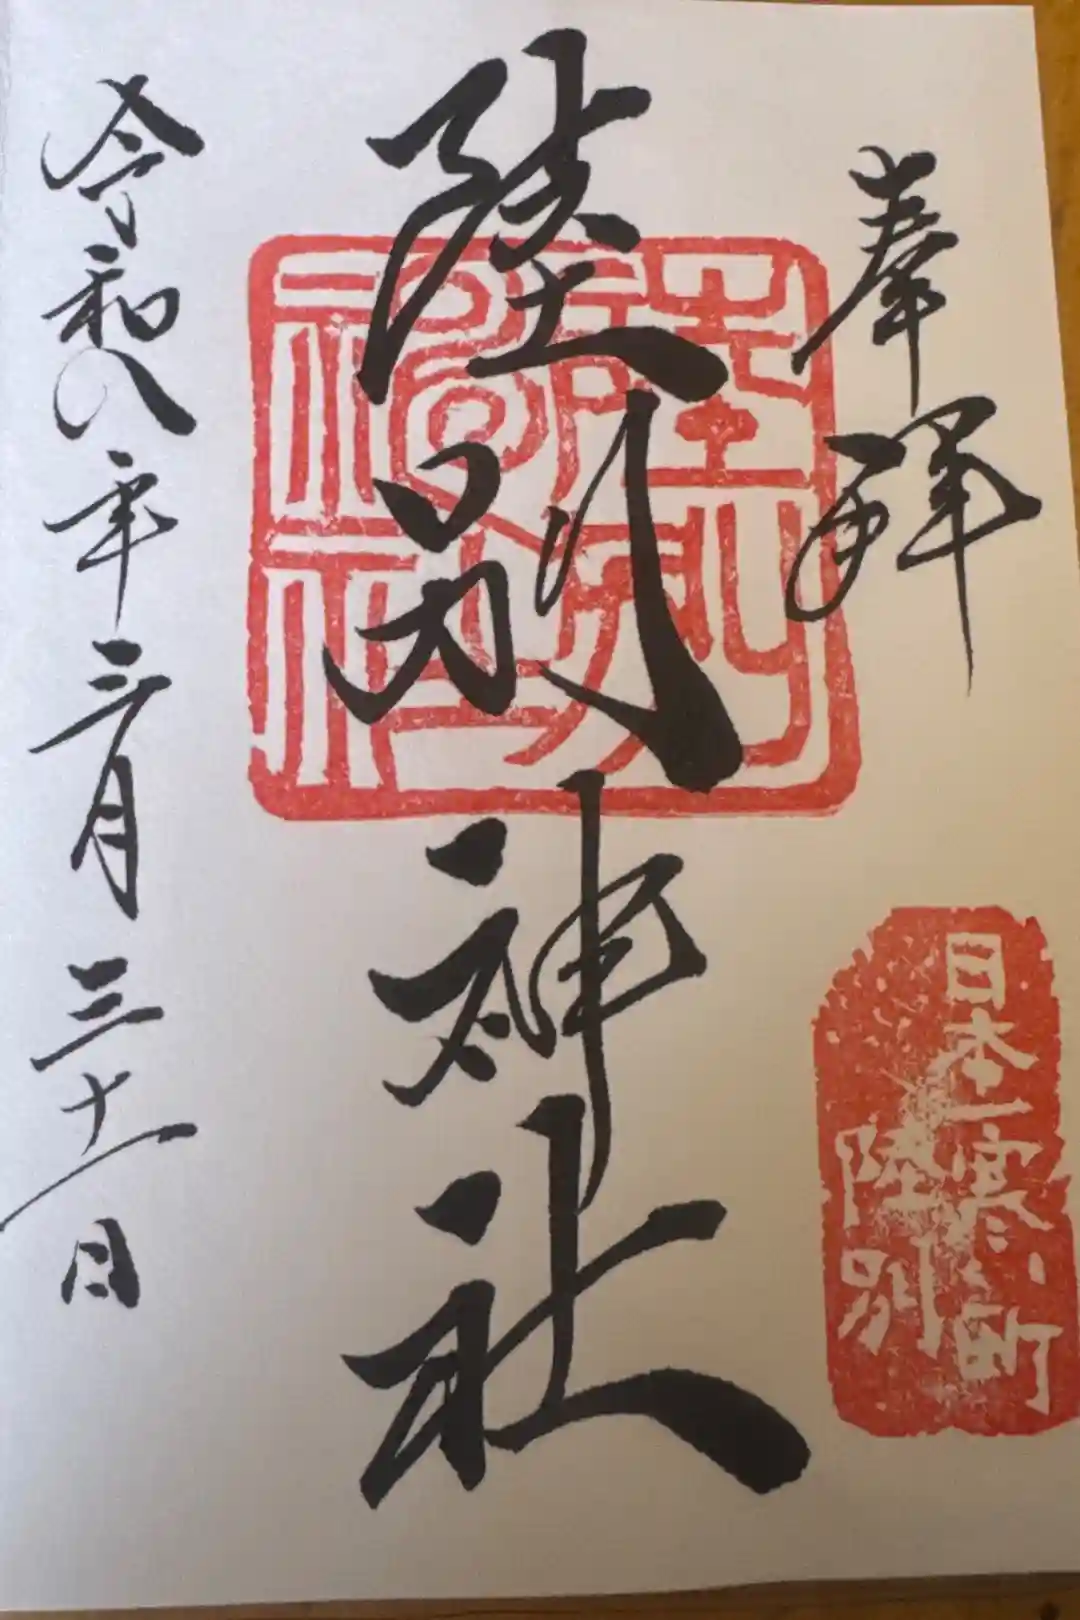 奉拝
日本一寒い町
陸別
陸別神社
陸別
神社
令和八年三月三十一日